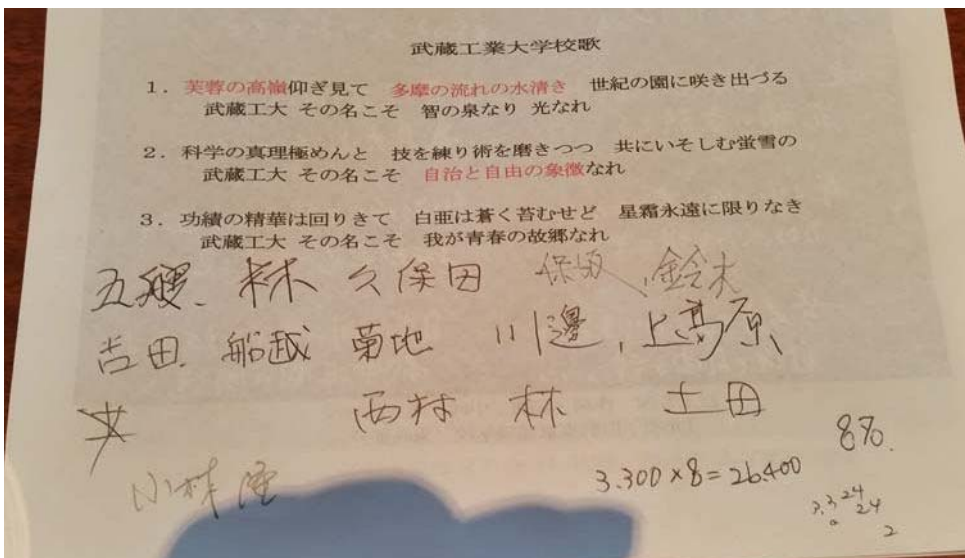 武蔵工業大学校歌
1. 芙蓉の高嶺仰ぎ見て 多摩の流れの水清き 世紀の園に咲き出づる
武蔵工大 その名こそ 智の泉なり 光なれ
2. 科学の真理極めんと 技を練り術を磨きつつ 共にいそしむ蛍雪の
武蔵工大 その名こそ 自治と自由の象徴なれ
3. 功績の精華は回りきて 白亜は蒼く苔むせど 星霜永遠に限りなき
武蔵工大 その名こそ 我が青春の故郷なれ
林 久保田 保坂、鈴木
吉田. 船越 菊地 川邊, 上髙原、
西村 林 土田
8%.
小林
3.300×8=26.400
3.3 24
24
2